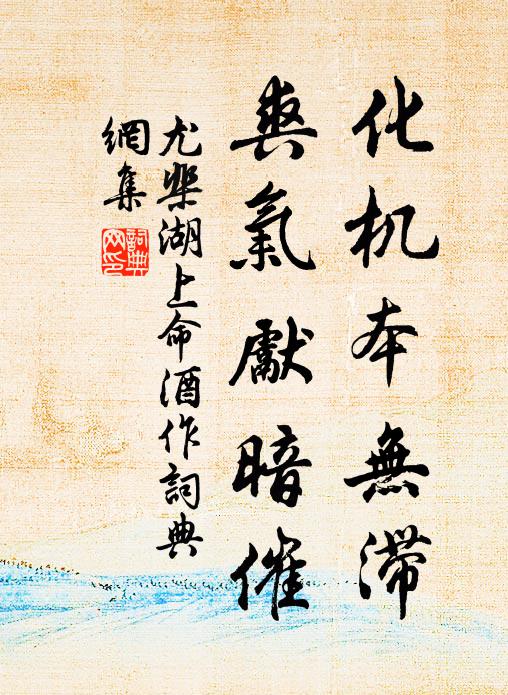 化机本無滯
爽氣獻暗催
尤棐湖上命酒作詞典
網集
詞典
网印